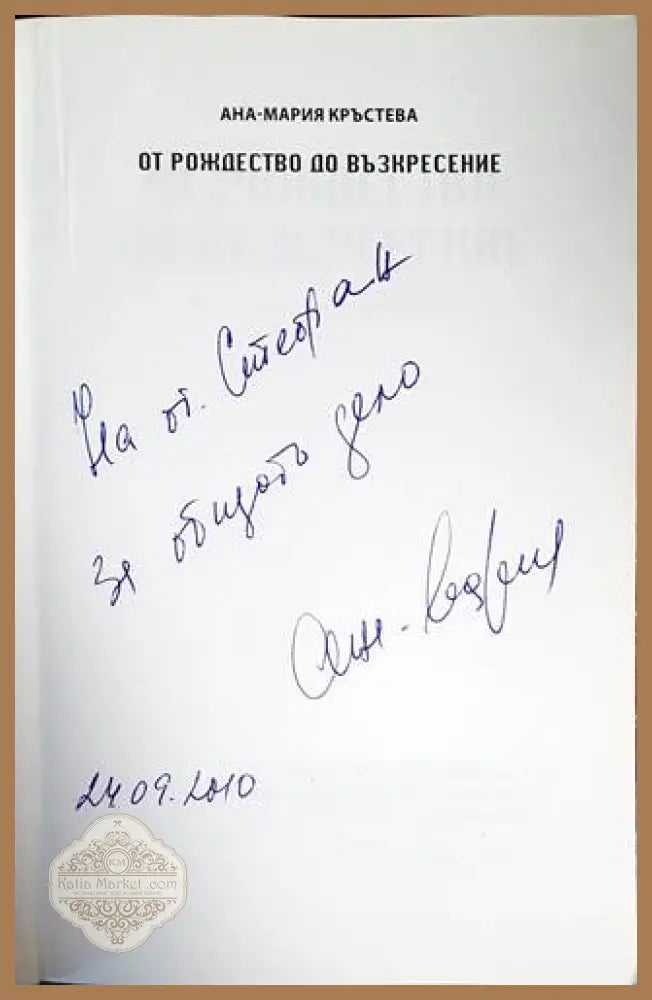 АНА-МАРИЯ КРЪСТЕВА
ОТ РОЖДЕСТВО ДО ВЪЗКРЕСЕНИЕ
На от. Стефан
За общото дело
Ана-Мария
24 09. 2010
KM
Katia Market .com